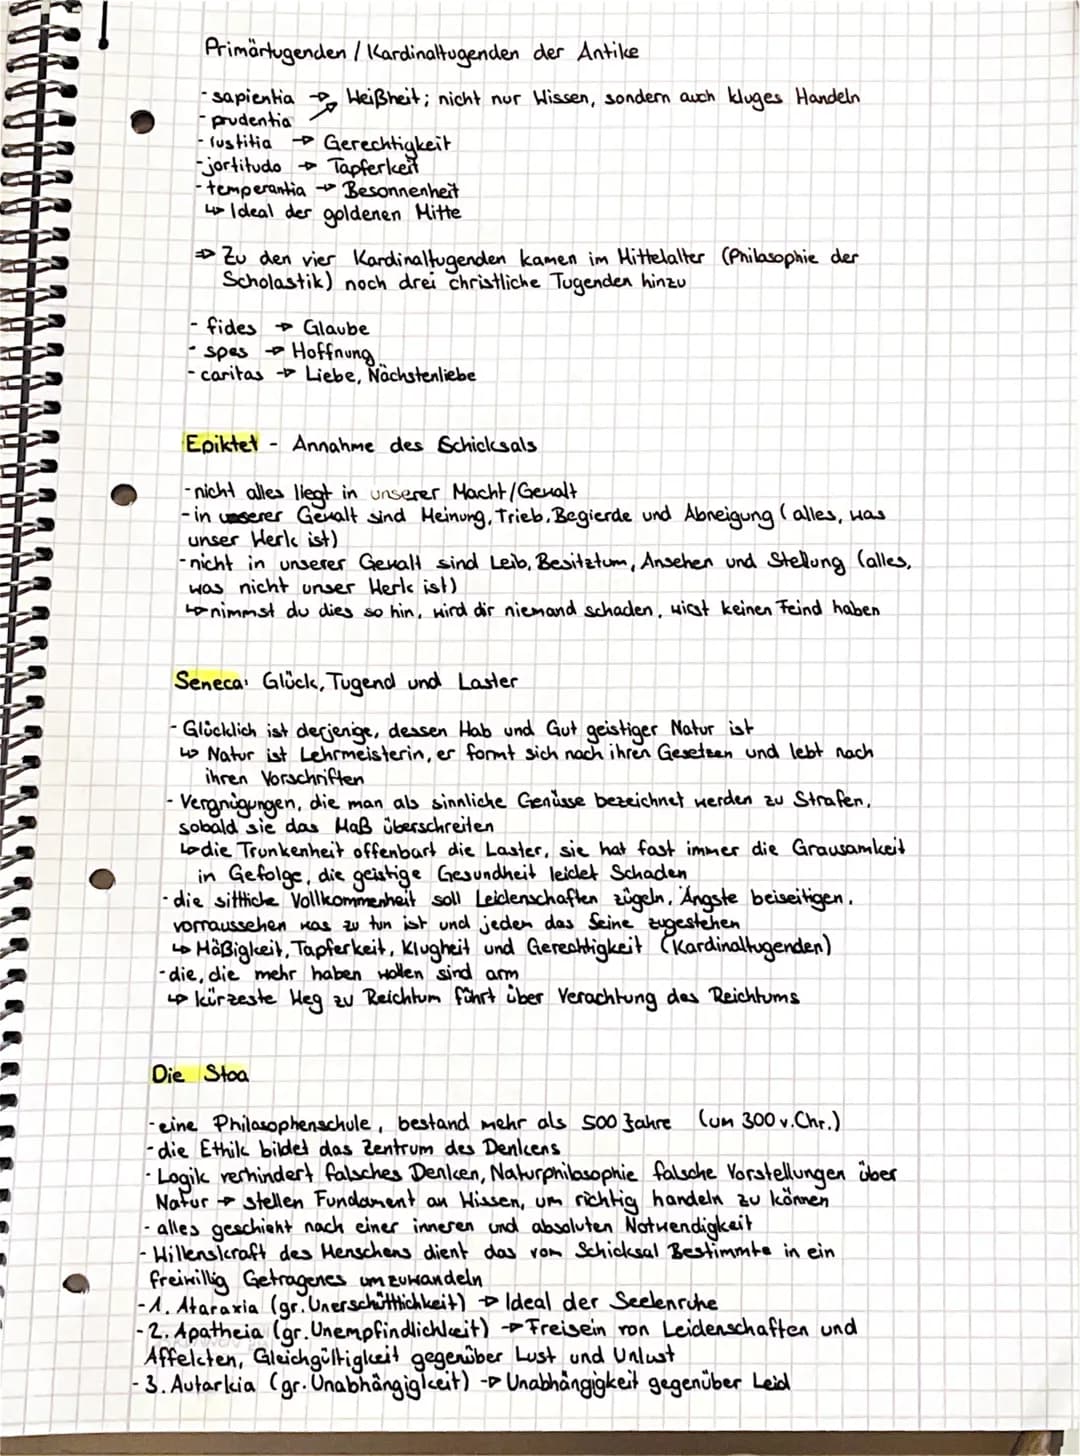 Primärtugenden / Kardinaltugenden der Antike
- sapientia → Weißheit; nicht nur Wissen, sondern auch kluges Handeln
- prudentia ↗
- iustitia → Gerechtigkeit
- jortitudo → Tapferkeit
- temperantia → Besonnenheit
↳ Ideal der goldenen Mitte
⇒ Zu den vier Kardinaltugenden kamen im Mittelalter (Philosophie der
Scholastik) noch drei christliche Tugenden hinzu
- fides → Glaube
- spes → Hoffnung
- caritas → Liebe, Nächstenliebe
Epiktet - Annahme des Schicksals
- nicht alles liegt in unserer Macht/Gewalt
- in unserer Gewalt sind Meinung, Trieb, Begierde und Abneigung (alles, was
unser Werk ist)
- nicht in unserer Gewalt sind Leib, Besitztum, Ansehen und Stellung (alles,
was nicht unser Werk ist)
↳ nimmst du dies so hin, wird dir niemand schaden, wirst keinen Feind haben
Seneca: Glück, Tugend und Laster
- Glücklich ist derjenige, dessen Hab und Gut geistiger Natur ist
↳ Natur ist Lehrmeisterin, er formt sich nach ihren Gesetzen und lebt nach
ihren Vorschriften
- Vergnügungen, die man als sinnliche Genüsse bezeichnet werden zu Strafen,
sobald sie das Maß überschreiten
↳ die Trunkenheit offenbart die Laster, sie hat fast immer die Grausamkeit
in Gefolge, die geistige Gesundheit leidet Schaden
- die sittliche Vollkommenheit soll Leidenschaften zügeln, Ängste beiseitigen,
vorraussehen was zu tun ist und jedem das Seine zugestehen
↳ Mäßigkeit, Tapferkeit, Klugheit und Gerechtigkeit (Kardinaltugenden)
- die, die mehr haben wollen sind arm
↳ kürzeste Weg zu Reichtum führt über Verachtung des Reichtums
Die Stoa
- eine Philosophenschule, bestand mehr als 500 Jahre (um 300 v.Chr.)
- die Ethik bildet das Zentrum des Denkens
- Logik verhindert falsches Denken, Naturphilosophie falsche Vorstellungen über
Natur → stellen Fundament an Wissen, um richtig handeln zu können
- alles geschieht nach einer inneren und absoluten Notwendigkeit
- Willenskraft des Menschens dient das vom Schicksal Bestimmte in ein
freiwillig Getragenes umzuwandeln
- 1. Ataraxia (gr. Unerschüttlichkeit) → Ideal der Seelenruhe
- 2. Apatheia (gr. Unempfindlichkeit) → Freisein von Leidenschaften und
Affekten, Gleichgültigkeit gegenüber Lust und Unlust
- 3. Autarkia (gr. Unabhängigkeit) → Unabhängigkeit gegenüber Leid